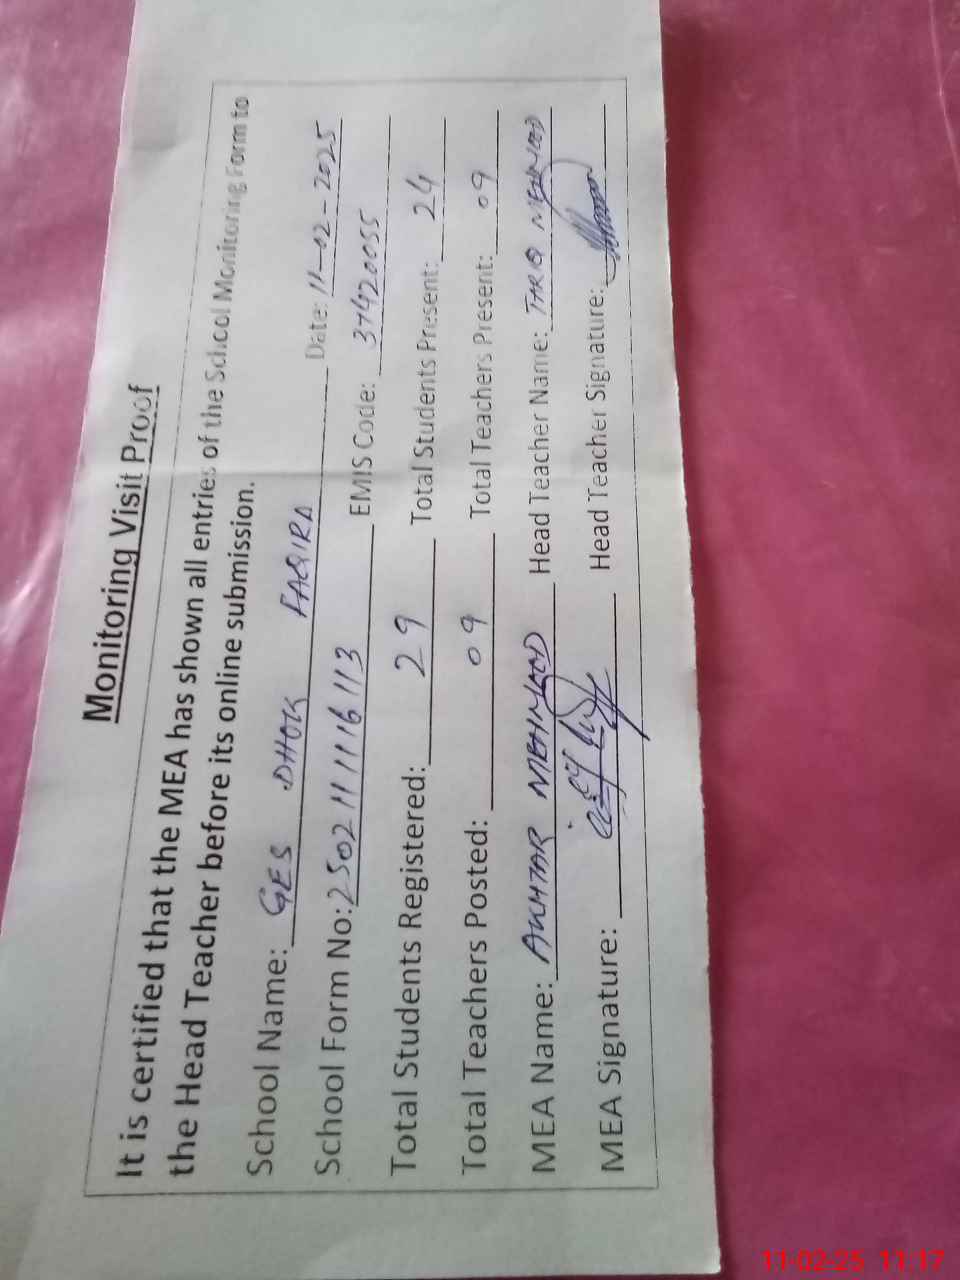 Monitoring Visit Proof
It is certified that the MEA has shown all entries of the School Monitoring Form to
the Head Teacher before its online submission.
School Name: GES DHOK FAQIRA Date: 11-02-2025
School Form No: 2502111116113 EMIS Code: 37420055
Total Students Registered: 29 Total Students Present: 24
Total Teachers Posted: 09 Total Teachers Present: 09
MEA Name: AKHTAR MEHMOOD Head Teacher Name: TARIQ MEHMOOD
MEA Signature: Head Teacher Signature:
11-02-25 11:17